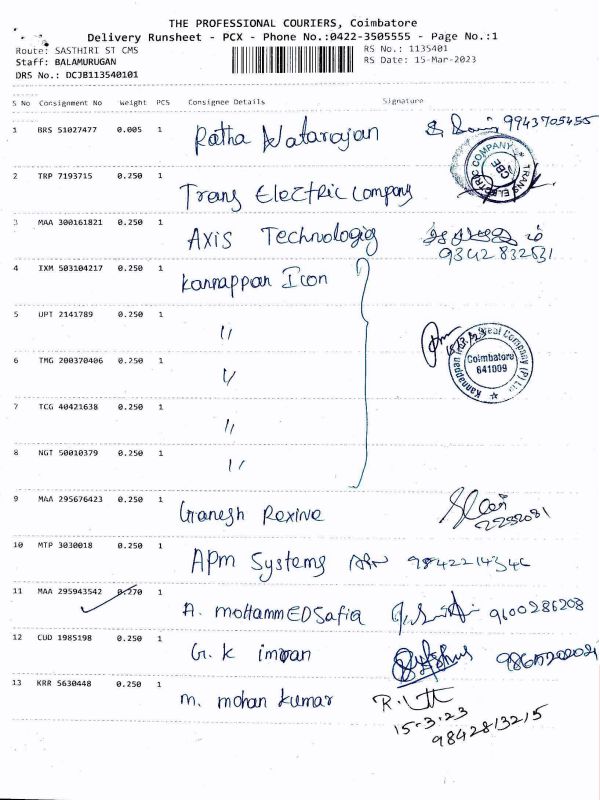 THE PROFESSIONAL COURIERS, Coimbatore
Delivery Runsheet - PCX - Phone No.:0422-3505555 - Page No.:1
Route: SASTHIRI ST CMS
RS No.: 1135401
Staff: BALAMURUGAN
RS Date: 15-Mar-2023
DRS No.: DCJB113540101
S No Consignment No Weight PCS Consignee Details Signature
1 BRS 51027477 0.005 1 Ratha Natarajan 9943705455
2 TRP 7193715 0.250 1 Trans Electric Company
TRANS ELECTRIC COMPANY CBE
3 MAA 300161821 0.250 1 Axis Technologig
9342832531
4 IXM 503104217 0.250 1 Kannappan Icon
5 UPT 2141789 0.250 1 "
Kannappan Company (P) Ltd
Coimbatore
641009
6 TMG 200370406 0.250 1 "
7 TCG 40421638 0.250 1 "
8 NGT 50010379 0.250 1 "
9 MAA 295676423 0.250 1 Ganesh Rexine
10 MTP 3030018 0.250 1 APm Systems
11 MAA 295943542 0.270 1 A. mohammEDSafia 9600286208
12 CUD 1985198 0.250 1 G. K imran
13 KRR 5630448 0.250 1 m. mohan kumar
15-3-23
9842813215